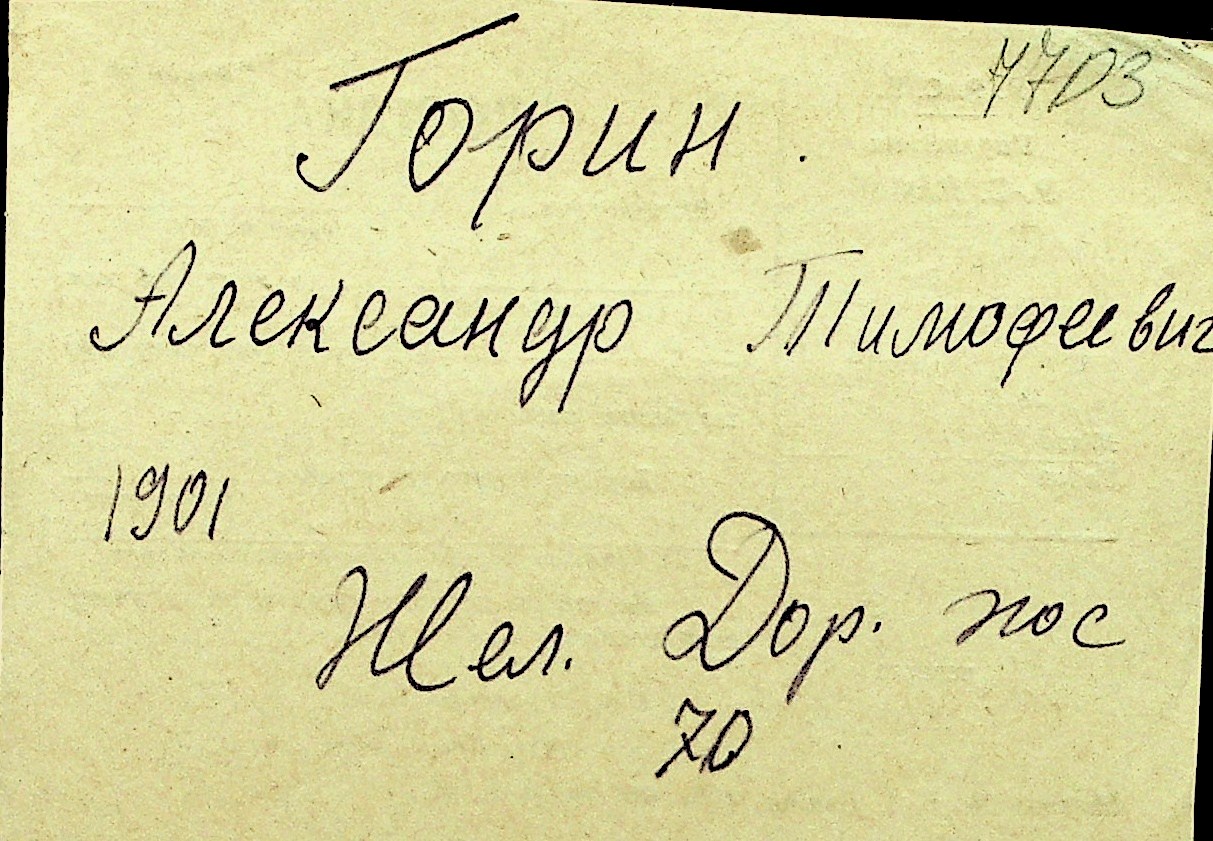 7703
Горин.
Александр Тимофеевич
1901
Жел. Дор. пос
70